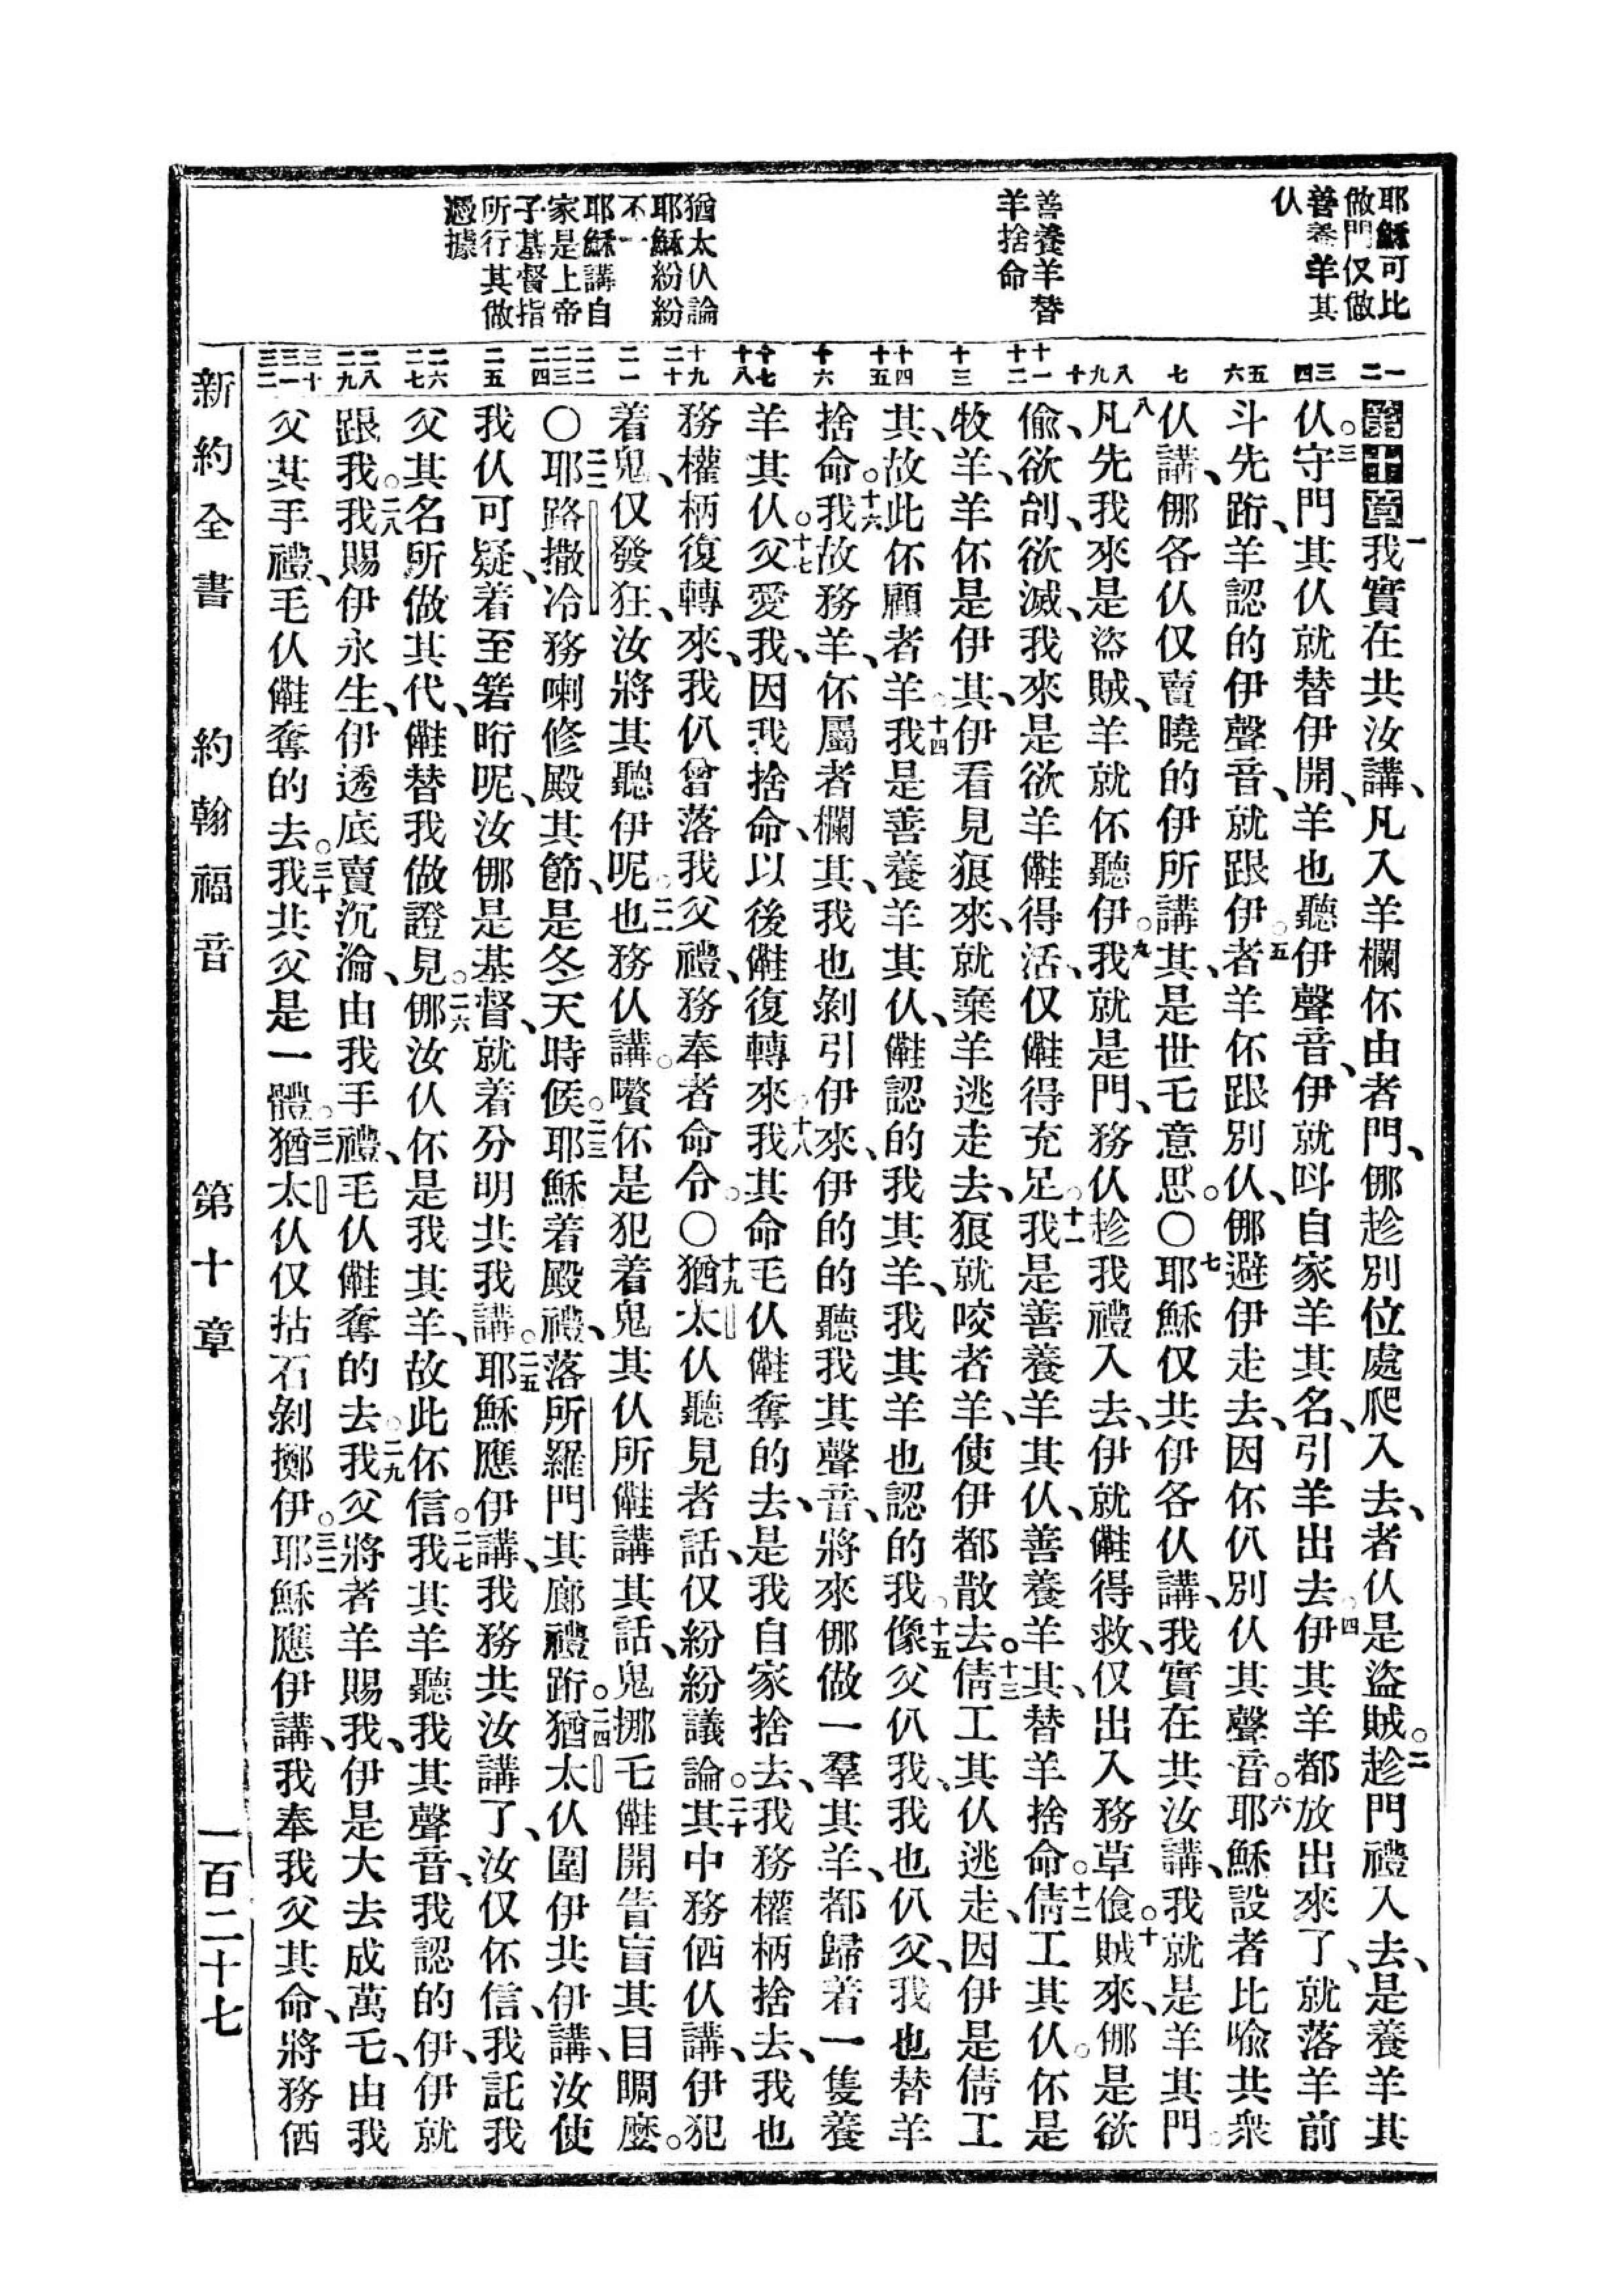 耶穌可比
做門仅做
善養羊其
仈
善養羊替
羊捨命
猶太仈論
耶穌紛紛
不一
耶穌講自
家是上帝
子基督指
所行其做
憑據
一二
三四
五六
七
八九十
十一十二
十三
十四十五
十六
十七十八
十九二十
二一
二二二三二四
二五
二六二七
二八二九
三十三一三二
第十章一我實在共汝講、凡入羊欄伓由者門、㑚趁別位處爬入去、者仈是盜賊。二趁門禮入去、是養羊其
仈。三守門其仈就替伊開、羊也聽伊聲音、伊就呌自家羊其名、引羊出去。四伊其羊都放出來了、就落羊前
斗先跔、羊認的伊聲音、就跟伊。五者羊伓跟別仈、㑚避伊走去、因伓仈別仈其聲音。六耶穌設者比喻共衆
仈講、㑚各仈仅賣曉的伊所講其、是世乇意思。〇七耶穌仅共伊各仈講、我實在共汝講、我就是羊其門。
八凡先我來是盜賊、羊就伓聽伊。九我就是門、務仈趁我禮入去、伊就㒕得救、仅出入務草飡。十賊來、㑚是欲
偷、欲刣、欲滅、我來是欲羊㒕得活、仅㒕得充足。十一我是善養羊其仈、善養羊其、替羊捨命。十二倩工其仈。伓是
牧羊、羊伓是伊其、伊看見狼來、就棄羊逃走去、狼就咬者羊、使伊都散去。十三倩工其仈逃走、因伊是倩工
其、故此伓顧者羊。十四我是善養羊其仈、㒕認的我其羊、我其羊也認的我。十五像父仈我、我也仈父、我也替羊
捨命。十六我故務羊、伓屬者欄其、我也剝引伊來、伊的的聽我其聲音、將來㑚做一羣其羊、都歸着一隻養
羊其仈。十七父愛我、因我捨命、以後㒕復轉來。十八我其命乇仈㒕奪的去、是我自家捨去、我務權柄捨去、我也
務權柄復轉來、我仈曾落我父禮、務奉者命令。〇十九猶太仈聽見者話、仅紛紛議論。二十其中務価仈講、伊犯
着鬼、仅發狂、汝將其聽伊呢。二一也務仈講。嚽伓是犯着鬼其仈所㒕講其話、鬼挪乇㒕開眚盲其目睭麼。
〇二二耶路撒冷務喇修殿其節、是冬天時候。二三耶穌着殿禮、落所羅門其廊禮跔。二四猶太仈圍伊共伊講、汝使
我仈可疑、着至䇄䀪呢、汝㑚是基督、就着分明共我講。二五耶穌應伊講、我務共汝講了、汝仅伓信、我託我
父其名所做其代、㒕替我做證見。二六㑚汝仈伓是我其羊、故此伓信。二七我其羊聽我其聲音、我認的伊、伊就
跟我。二八我賜伊永生、伊透底賣沉淪、由我手禮、乇仈㒕奪的去。二九我父將者羊賜我、伊是大去成萬乇、由我
父其手禮、乇仈㒕奪的去。三十我共父是一體。三一猶太仈仅拈石剝擲伊。三二耶穌應伊講、我奉我父其命、將務価
新約全書 約翰福音 第十章 一百二十七